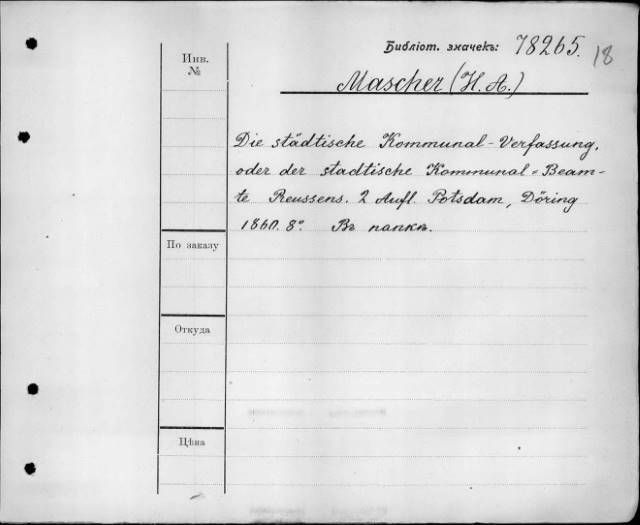 Библіот. значекъ: 78265. 18
Инв.
№
Mascher (H. A.)
Die städtische Kommunal-Verfassung,
oder der stadtische Kommunal-Beam-
te Preussens. 2 Aufl. Potsdam, Döring
1860. 8°. Въ папкѣ.
По заказу
Откуда
Цѣна